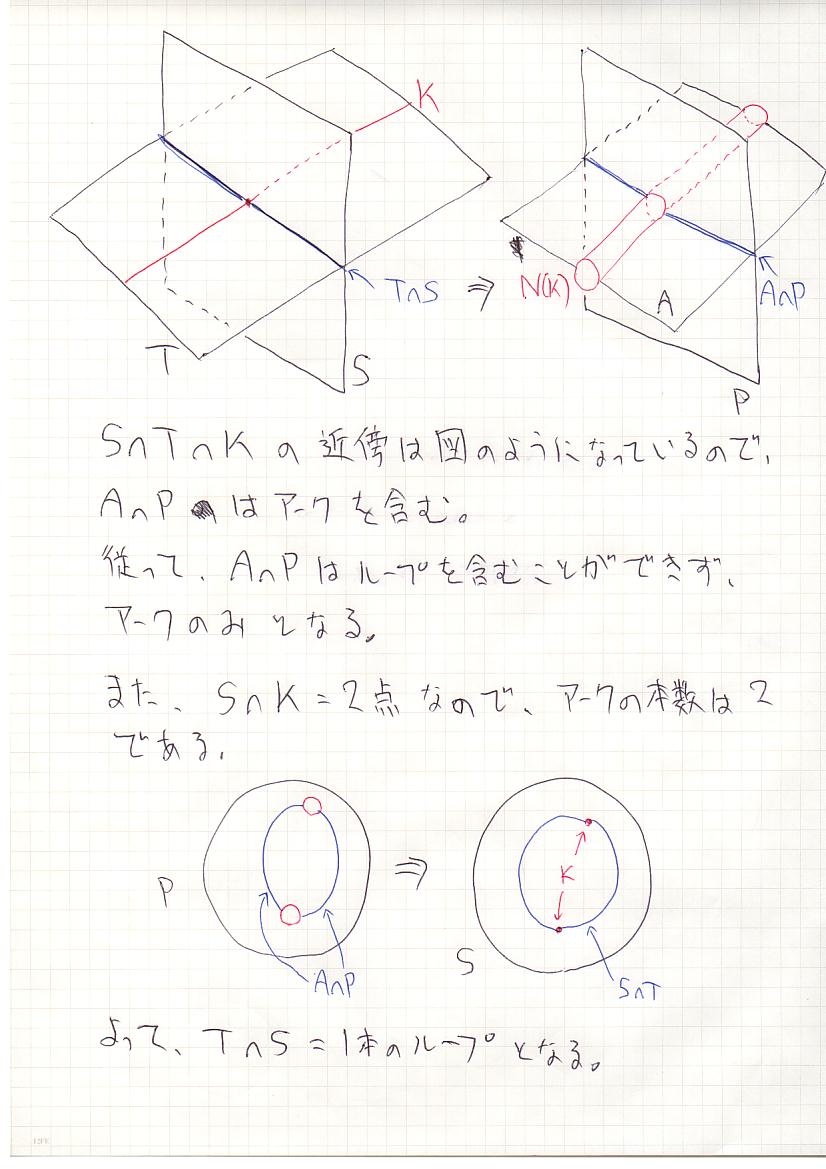 K
T∩S
⇒
N(K)
A
A∩P
T
S
P
S∩T∩K の 近傍は図のようになっているので、
A∩P はアークを含む。
従って、A∩Pはループを含むことができず、
アークのみとなる。
また、S∩K=2点なので、アークの本数は2
である。
P
⇒
K
S
A∩P
S∩T
よって、T∩S=1本のループとなる。